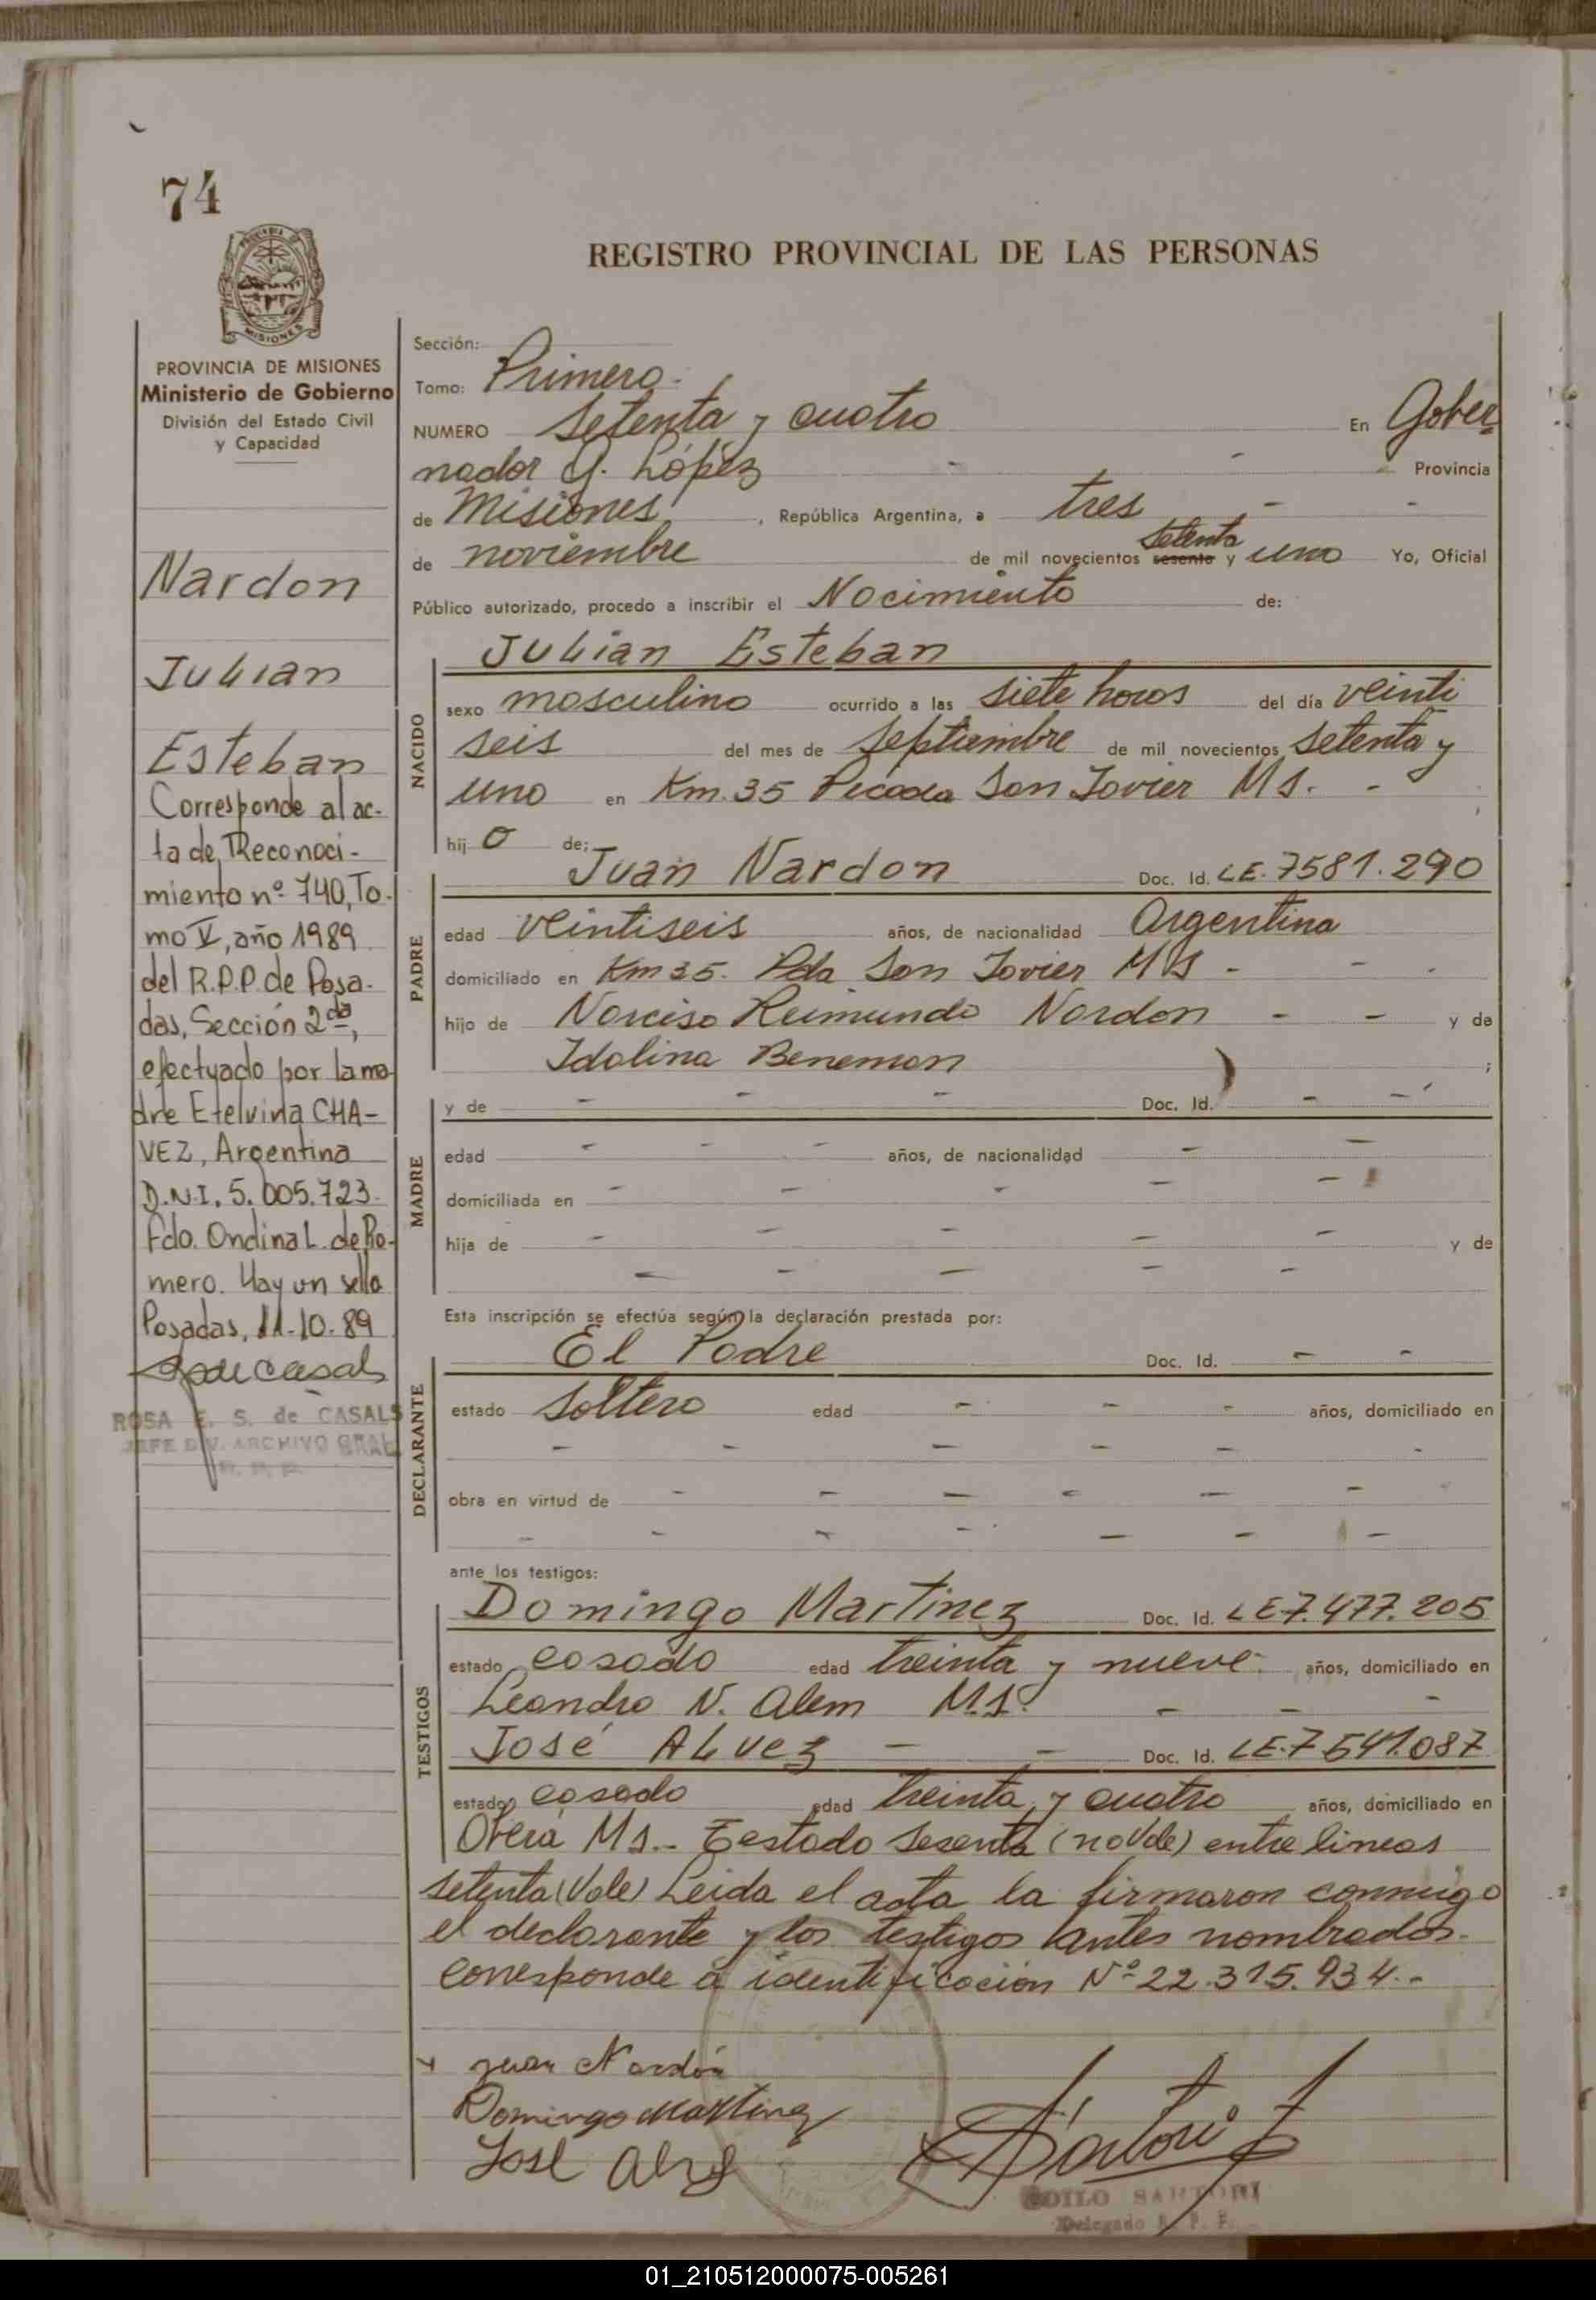 74
PROVINCIA DE MISIONES
Ministerio de Gobierno
División del Estado Civil
y Capacidad
Nardon
Julian
Esteban
Corresponde al ac-
ta de Reconoci-
miento nº 740, To-
mo V, año 1989
del R.P.P. de Posa-
das, Sección 2da,
efectuado por la ma-
dre Etelvina CHA-
VEZ, Argentina
D.N.I. 5.005.723.
Fdo. Ondina L. de Ro-
mero. Hay un sello
Posadas, 11-10-89
ROSA E. S. de CASALS
JEFE DIV. ARCHIVO GRAL.
R. P. P.
REGISTRO PROVINCIAL DE LAS PERSONAS
Sección:
Tomo: Primero.
NUMERO Setenta y cuatro En Gober
nador G. López - - Provincia
de Misiones, República Argentina, a tres - -
de noviembre de mil novecientos sesenta setenta y uno Yo, Oficial
Público autorizado, procedo a inscribir el Nacimiento de:
Julian Esteban
NACIDO
sexo masculino ocurrido a las siete horas del día veinti
seis del mes de septiembre de mil novecientos setenta y
uno en Km. 35 Picada San Javier Ms. -
hij o de:
Juan Nardon Doc. Id. LE. 7581.290
PADRE
edad veintiseis años, de nacionalidad Argentina
domiciliado en Km 35. Pda San Javier Ms - - -
hijo de Narciso Reimundo Nardon - - y de
Idalina Beneman ;
MADRE
y de - - - Doc. Id. - -
edad - - - años, de nacionalidad - -
domiciliada en - - - - -
hija de - - - - - y de
- - - - -
Esta inscripción se efectúa según la declaración prestada por:
El Padre Doc. Id. - -
DECLARANTE
estado soltero edad - - - años, domiciliado en
- - - - - -
obra en virtud de - - - - - -
- - - - - - -
ante los testigos:
Domingo Martinez Doc. Id. LE 7.477.205
TESTIGOS
estado casado edad treinta y nueve. años, domiciliado en
Leandro N. Alem Ms. - - -
José Alvez - - Doc. Id. LE. 7541.087
estado casado edad treinta y cuatro años, domiciliado en
Oberá Ms.- Testado sesenta (no Vale) entre lineas
setenta (Vale) Leida el acta la firmaron conmigo
el declarante y los testigos antes nombrados.
corresponde a identificación Nº 22.315.934.-
Juan Nardón
Domingo Martinez
José Alvez
Sartori
ZOILO SARTORI
Delegado R. P. P.
01_210512000075-005261